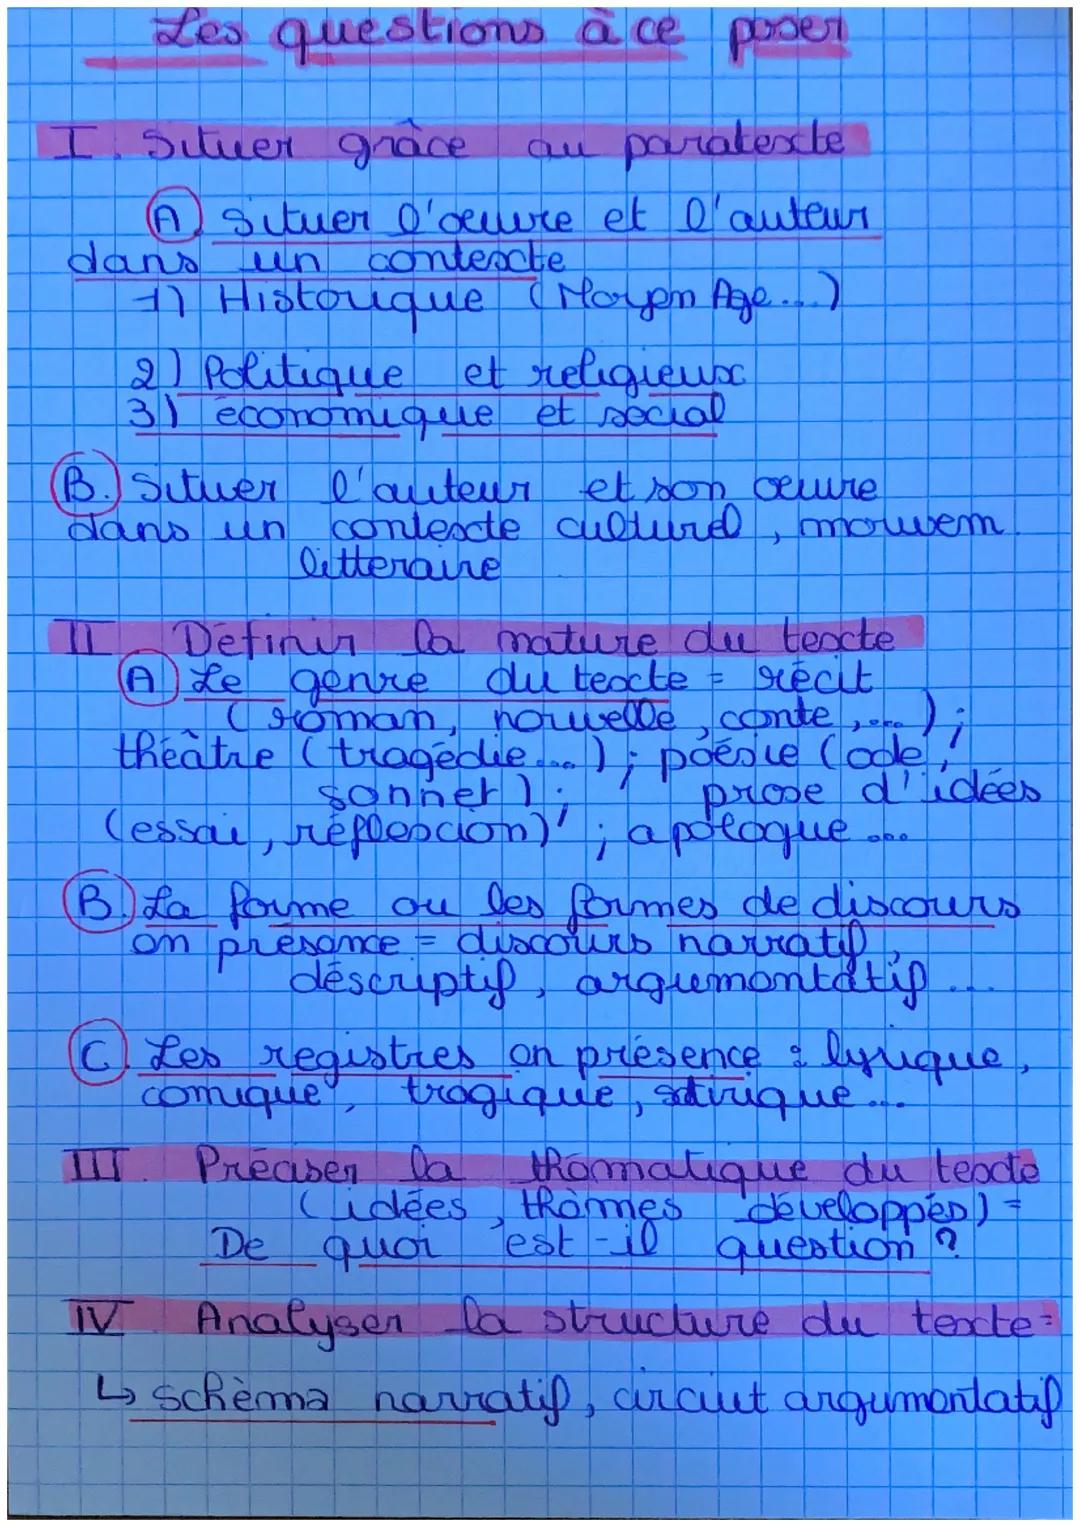 Les questions à ce poser
I. Situer grâce au paratexte
A) Situer l'œuvre et l'auteur
dans un contexte
1) Historique (Moyen Age...)
2) Politique et religieux
3) économique et social
B. Situer l'auteur et son œuvre
dans un contexte culturel, mouvem.
litteraire
II Définir la nature du texte
A) Le genre du texte = récit
(roman, nouvelle, conte,...);
théâtre (tragédie...); poésie (ode,
sonnet); prose d'idées
(essai, réflexion); apologue...
B. La forme ou les formes de discours
en présence = discours narratif,
déscriptif, argumentatif...
C. Les registres en présence : lyrique,
comique, tragique, satirique...
III. Préciser la thématique du texte
(idées, thèmes développés) =
De quoi est-il question ?
IV Analyser la structure du texte =
↳ schèma narratif, circuit argumentatif